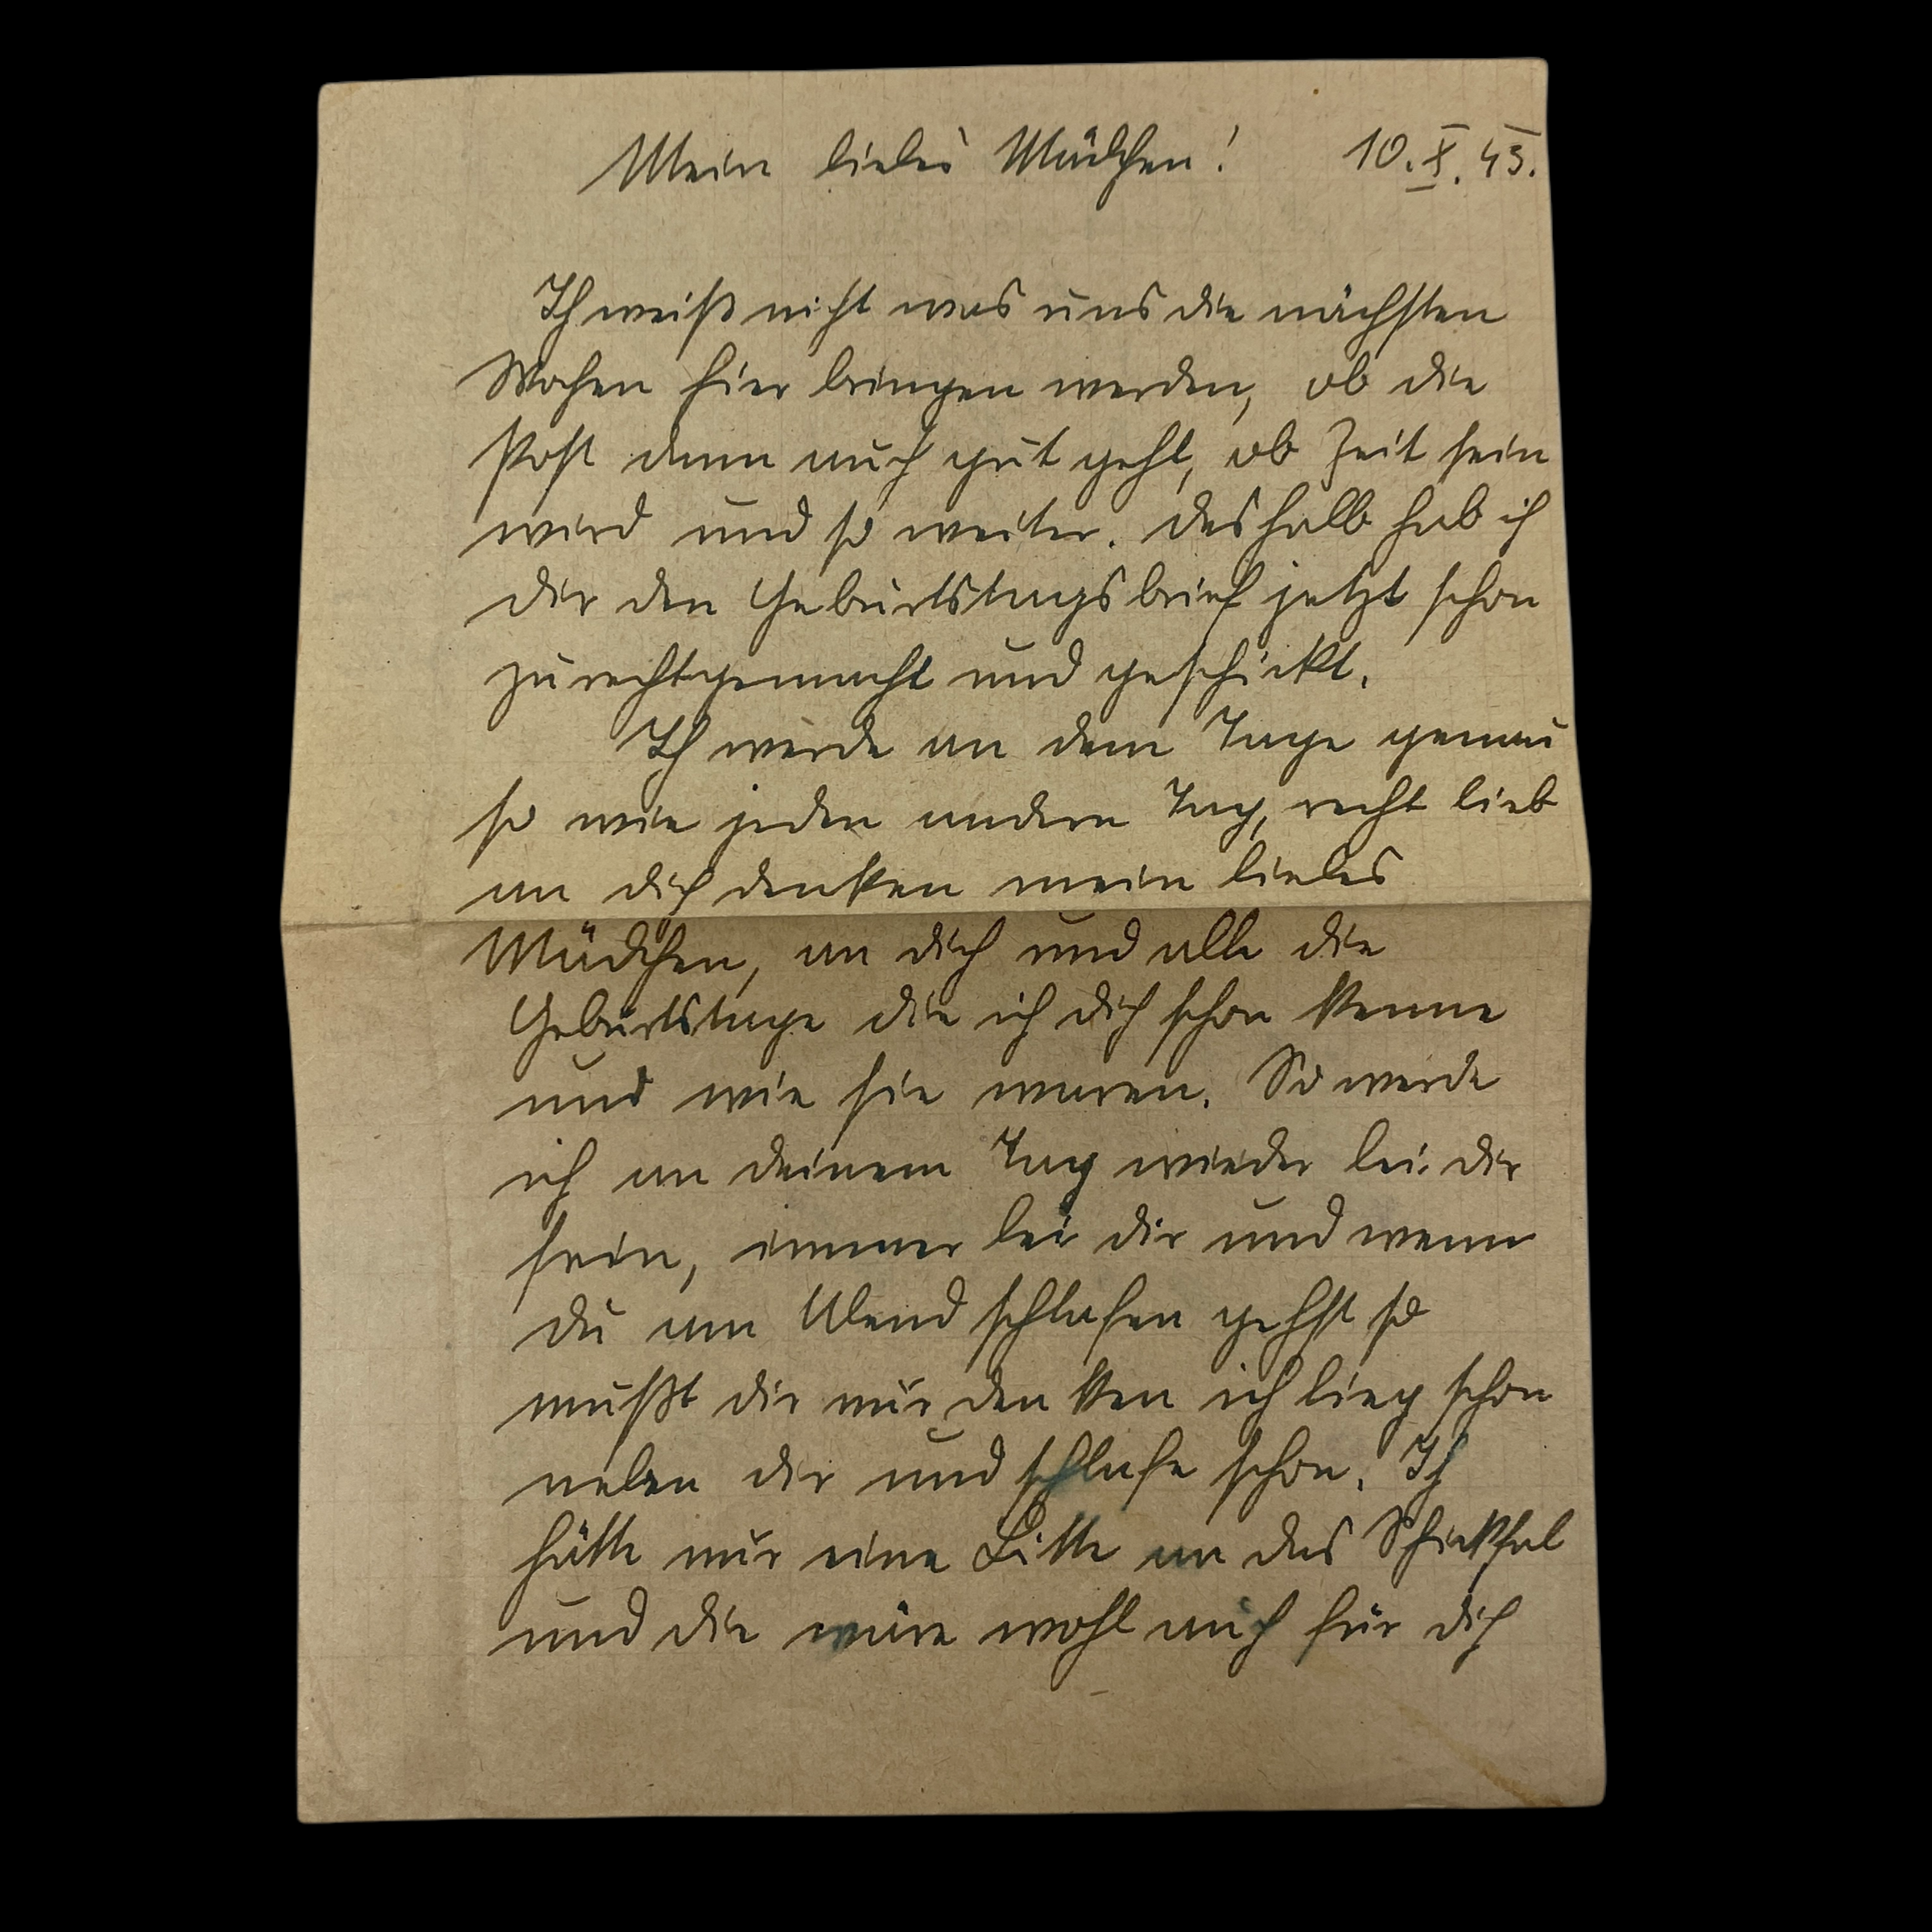 Mein liebes Mädchen! 10.X.43.
Ich weiß nicht was uns die nächsten
Wochen hier bringen werden, ob die
Post dann auch gut geht, ob Zeit sein
wird und so weiter. Deshalb hab ich
dir den Geburtstagsbrief jetzt schon
zurechtgemacht und geschickt.
Ich werde an dem Tage genau
so wie jeden andern Tag, recht lieb
an dich denken mein liebes
Mädchen, an dich und alle die
Geburtstage die ich dich schon kenne
und wie sie waren. So werde
ich an deinem Tag wieder bei dir
sein, immer bei dir und wenn
du am Abend schlafen gehst so
mußt dir nur denken ich lieg schon
neben dir und schlafe schon. Ich
hätte nur eine Bitte an das Schicksal
und die wäre wohl auch für dich